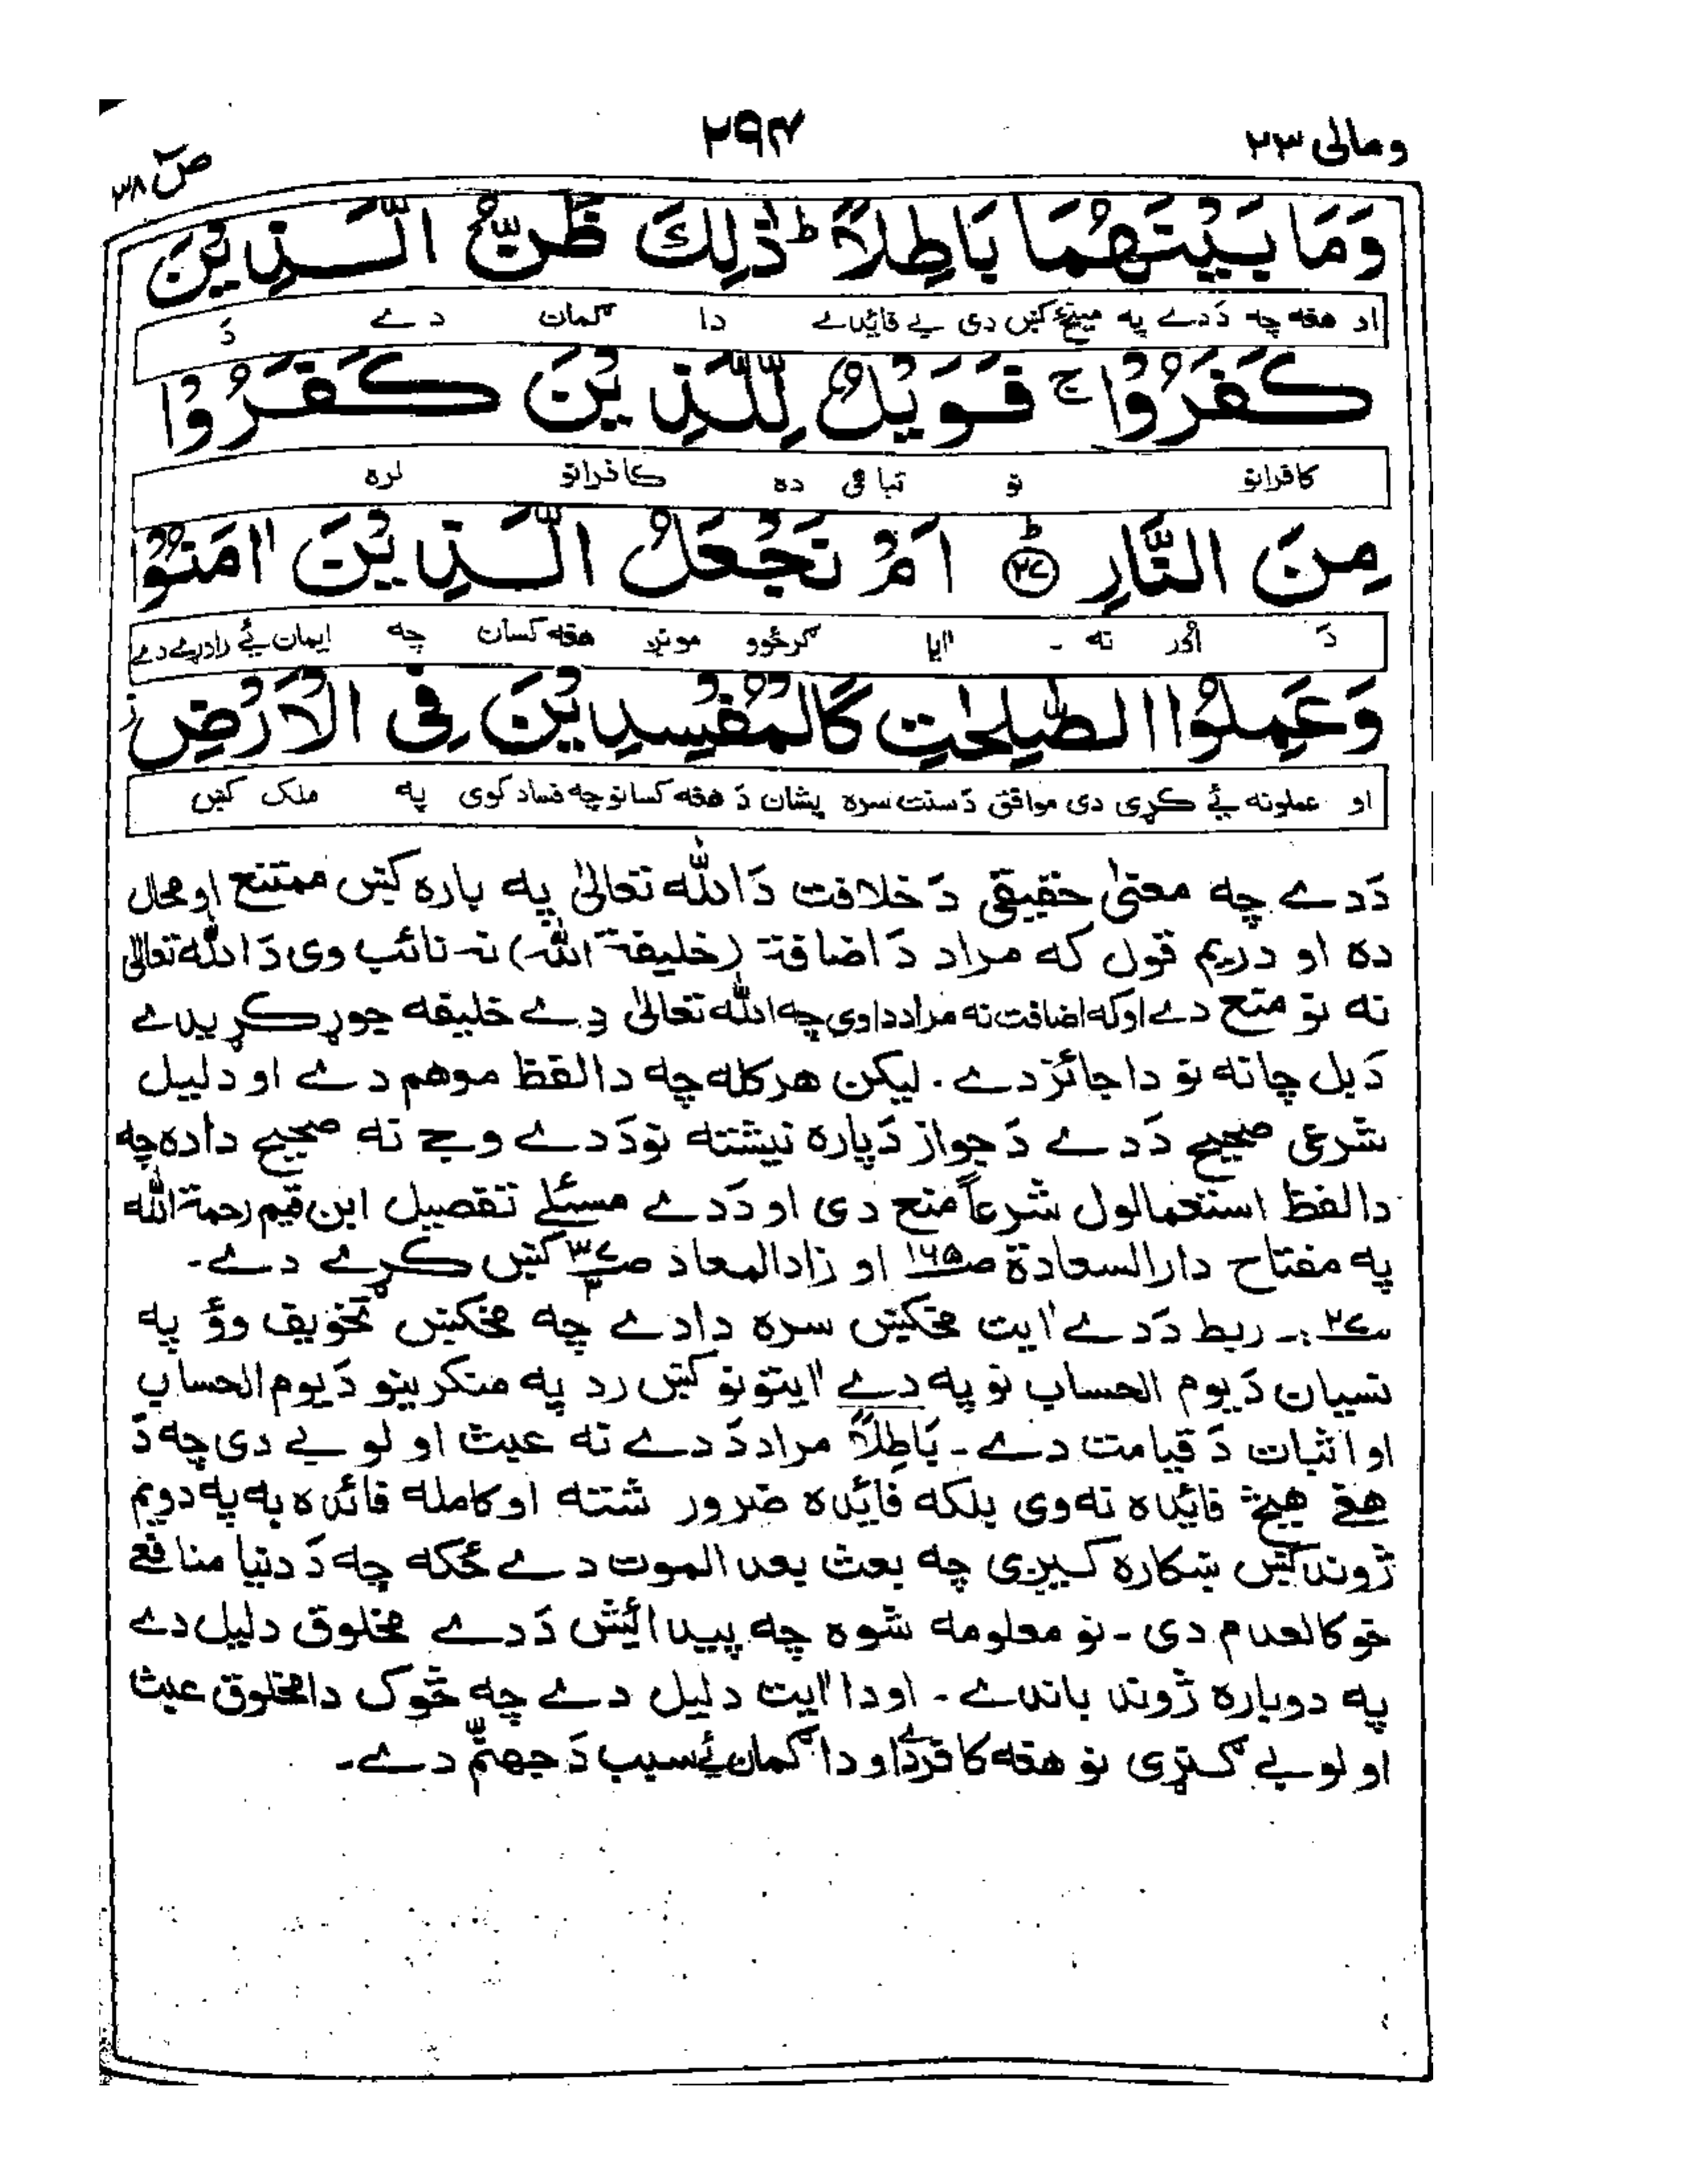 ومالی ۲۳
۲۹۴
صٓ ۳۸
وَمَا بَيْنَهُمَا بَاطِلًا ؕ ذٰلِكَ ظَنُّ الَّذِيْنَ
او هغه چه دَدے په مینځ کښ دی بے فائیدے دا گمان دے دَ
كَفَرُوْا ۚ فَوَيْلٌ لِّلَّذِيْنَ كَفَرُوْا
کافرانو نو تباهی ده کافرانو لره
مِنَ النَّارِ ؕ ﴿۲۷﴾ اَمْ نَجْعَلُ الَّذِيْنَ اٰمَنُوْا
دَ اُور نه ۔ اٰیا گرځوو مونږ هغه کسان چه ایمان ئے راوړے دے
وَعَمِلُوا الصّٰلِحٰتِ كَالْمُفْسِدِيْنَ فِی الْاَرْضِ ز
او عملونه ئے کړی دی موافق دَ سنت سره پشان دَ هغه کسانو چه فساد کوی په ملک کښ
دَدے چه معنیٰ حقیقی دَ خلافت دَ الله تعالیٰ په باره کښ ممتنع او محال
ده او دریم قول که مراد دَ اضافة (خلیفة الله) نه نائب وی دَ الله تعالیٰ
نه نو منع دے او که اضافت نه مراد دا وی چه الله تعالیٰ دِے خلیفه جوړ کړیدے
دَ بل چا نه نو دا جائز دے . لیکن هرکله چه دا لفظ موهم دے او دلیل
شرعی صحیح دَدے دَ جواز دَ پاره نیشته نو دَدے وجے نه صحیح داده چه
دا لفظ استعمالول شرعاً منع دی او دَدے مسئلے تفصیل ابن قیم رحمة الله
په مفتاح دار السعادة ص۱۶۵ او زاد المعاد ص۳۷/۳ کښ کړے دے۔
۲۷ :۔ ربط دَدے اٰیت مخکښ سره دادے چه مخکښ تخویف وؤ په
نسیان دَ یوم الحساب نو په دے اٰیتونو کښ رد په منکرینو دَ یوم الحساب
او اثبات دَ قیامت دے ۔ بَاطِلًا مراد دَدے نه عبث او لوبے دی چه دَ
هغے هیڅ فائیده نه وی بلکه فائیده ضرور شته او کامله فائده به په دویم
ژوند کښ ښکاره کیږی چه بعث بعد الموت دے ځکه چه دَ دنیا منافعے
خو کالعدم دی ۔ نو معلومه شوه چه پیدائیش دَدے مخلوق دلیل دے
په دوباره ژوند باندے ۔ او دا اٰیت دلیل دے چه څوک دا مخلوق عبث
او لوبے گنړی نو هغه کافر دے او دا گمان ئے سبب دَ جهنّم دے۔